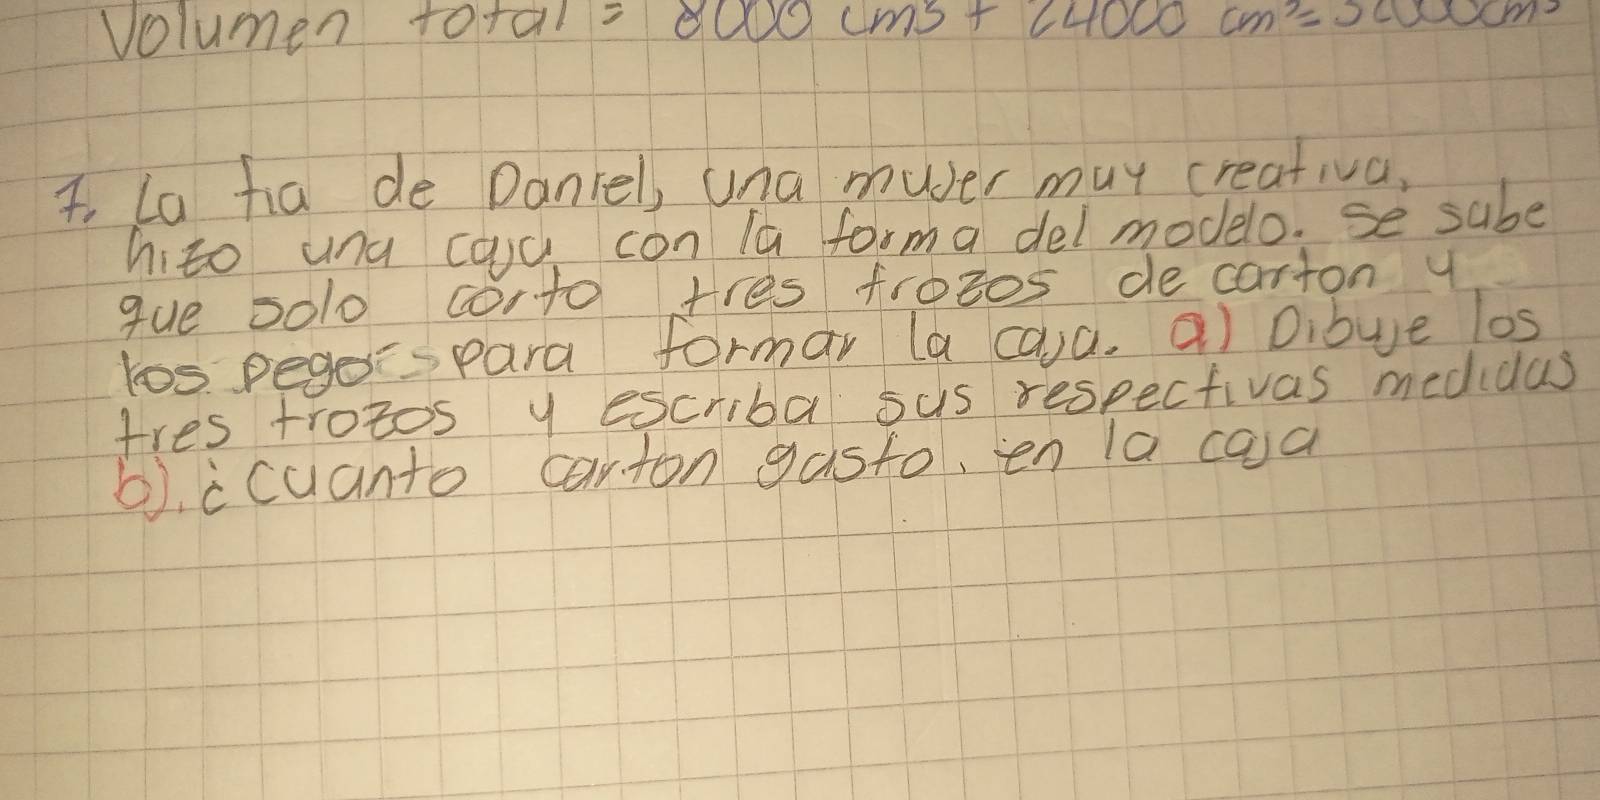 Volumen total = 8000 cm3 + 24000 cm³ = 32000cm³
7. La tia de Daniel, una mujer muy creativa,
hizo una caja con la forma del modelo. Se sabe
que solo corto tres trozos de carton y
los pego para formar la caja. a) Dibuje los
tres trozos y escriba sus respectivas medidas
b). ¿cuanto carton gasto. en la caja